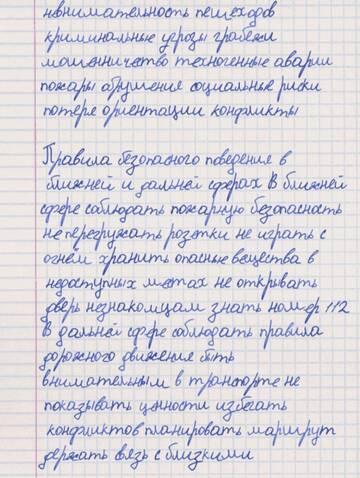 невнимательность пешеходов
криминальные угрозы грабежи
мошенничество техногенные аварии
пожары обрушение социальные риски
потере ориентации конфликты
Правила безопасного поведение в
ближней и дальней сферах В ближней
сфере соблюдать пожарную безопасность
не перегружать розетки не играть с
огнем хранить опасные вещества в
недоступных местах не открывать
дверь незнакомцам знать номер 112
В дальней сфере соблюдать правила
дорожного движения быть
внимательным в транспорте не
показывать ценности избегать
конфликтов планировать маршрут
держать связь с близкими